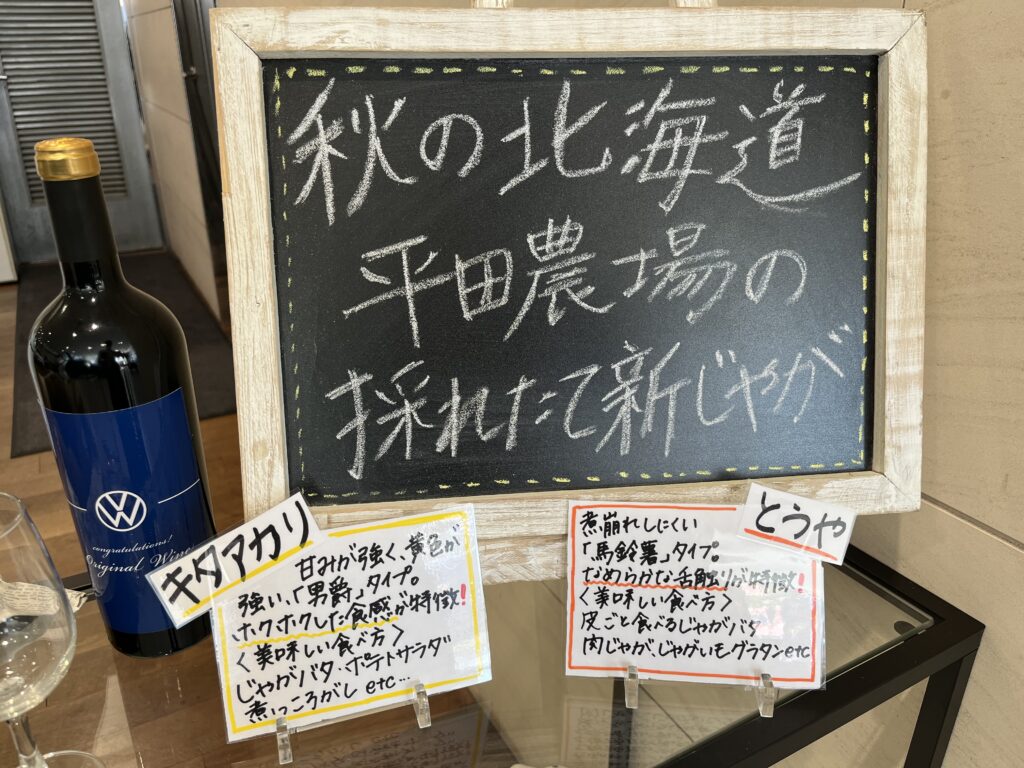 秋の北海道
平田農場の
採れたて新じゃが
congratulations!
Original Wine
キタアカリ
甘みが強く、黄色が
強い、「男爵」タイプ。
ホクホクした食感が特徴!
<美味しい食べ方>
じゃがバタ・ポテトサラダ
煮っころがし etc...
とうや
煮崩れしにくい
「馬鈴薯」タイプ。
なめらかな舌触りが特徴!
<美味しい食べ方>
皮ごと食べるじゃがバタ
肉じゃが、じゃがいもグラタンetc